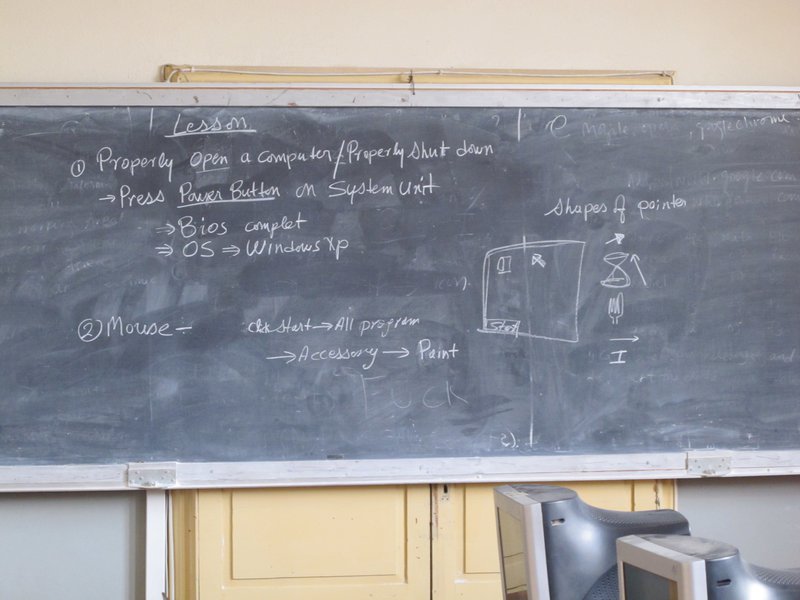 Lesson
① Properly Open a computer/Properly shut down
→ Press Power Button on System Unit
⇒ Bios complet
⇒ OS ⇒ Windows Xp
② Mouse –
click start → All program
→ Accessory → Paint
Fuck
Shapes of pointer
Start
I